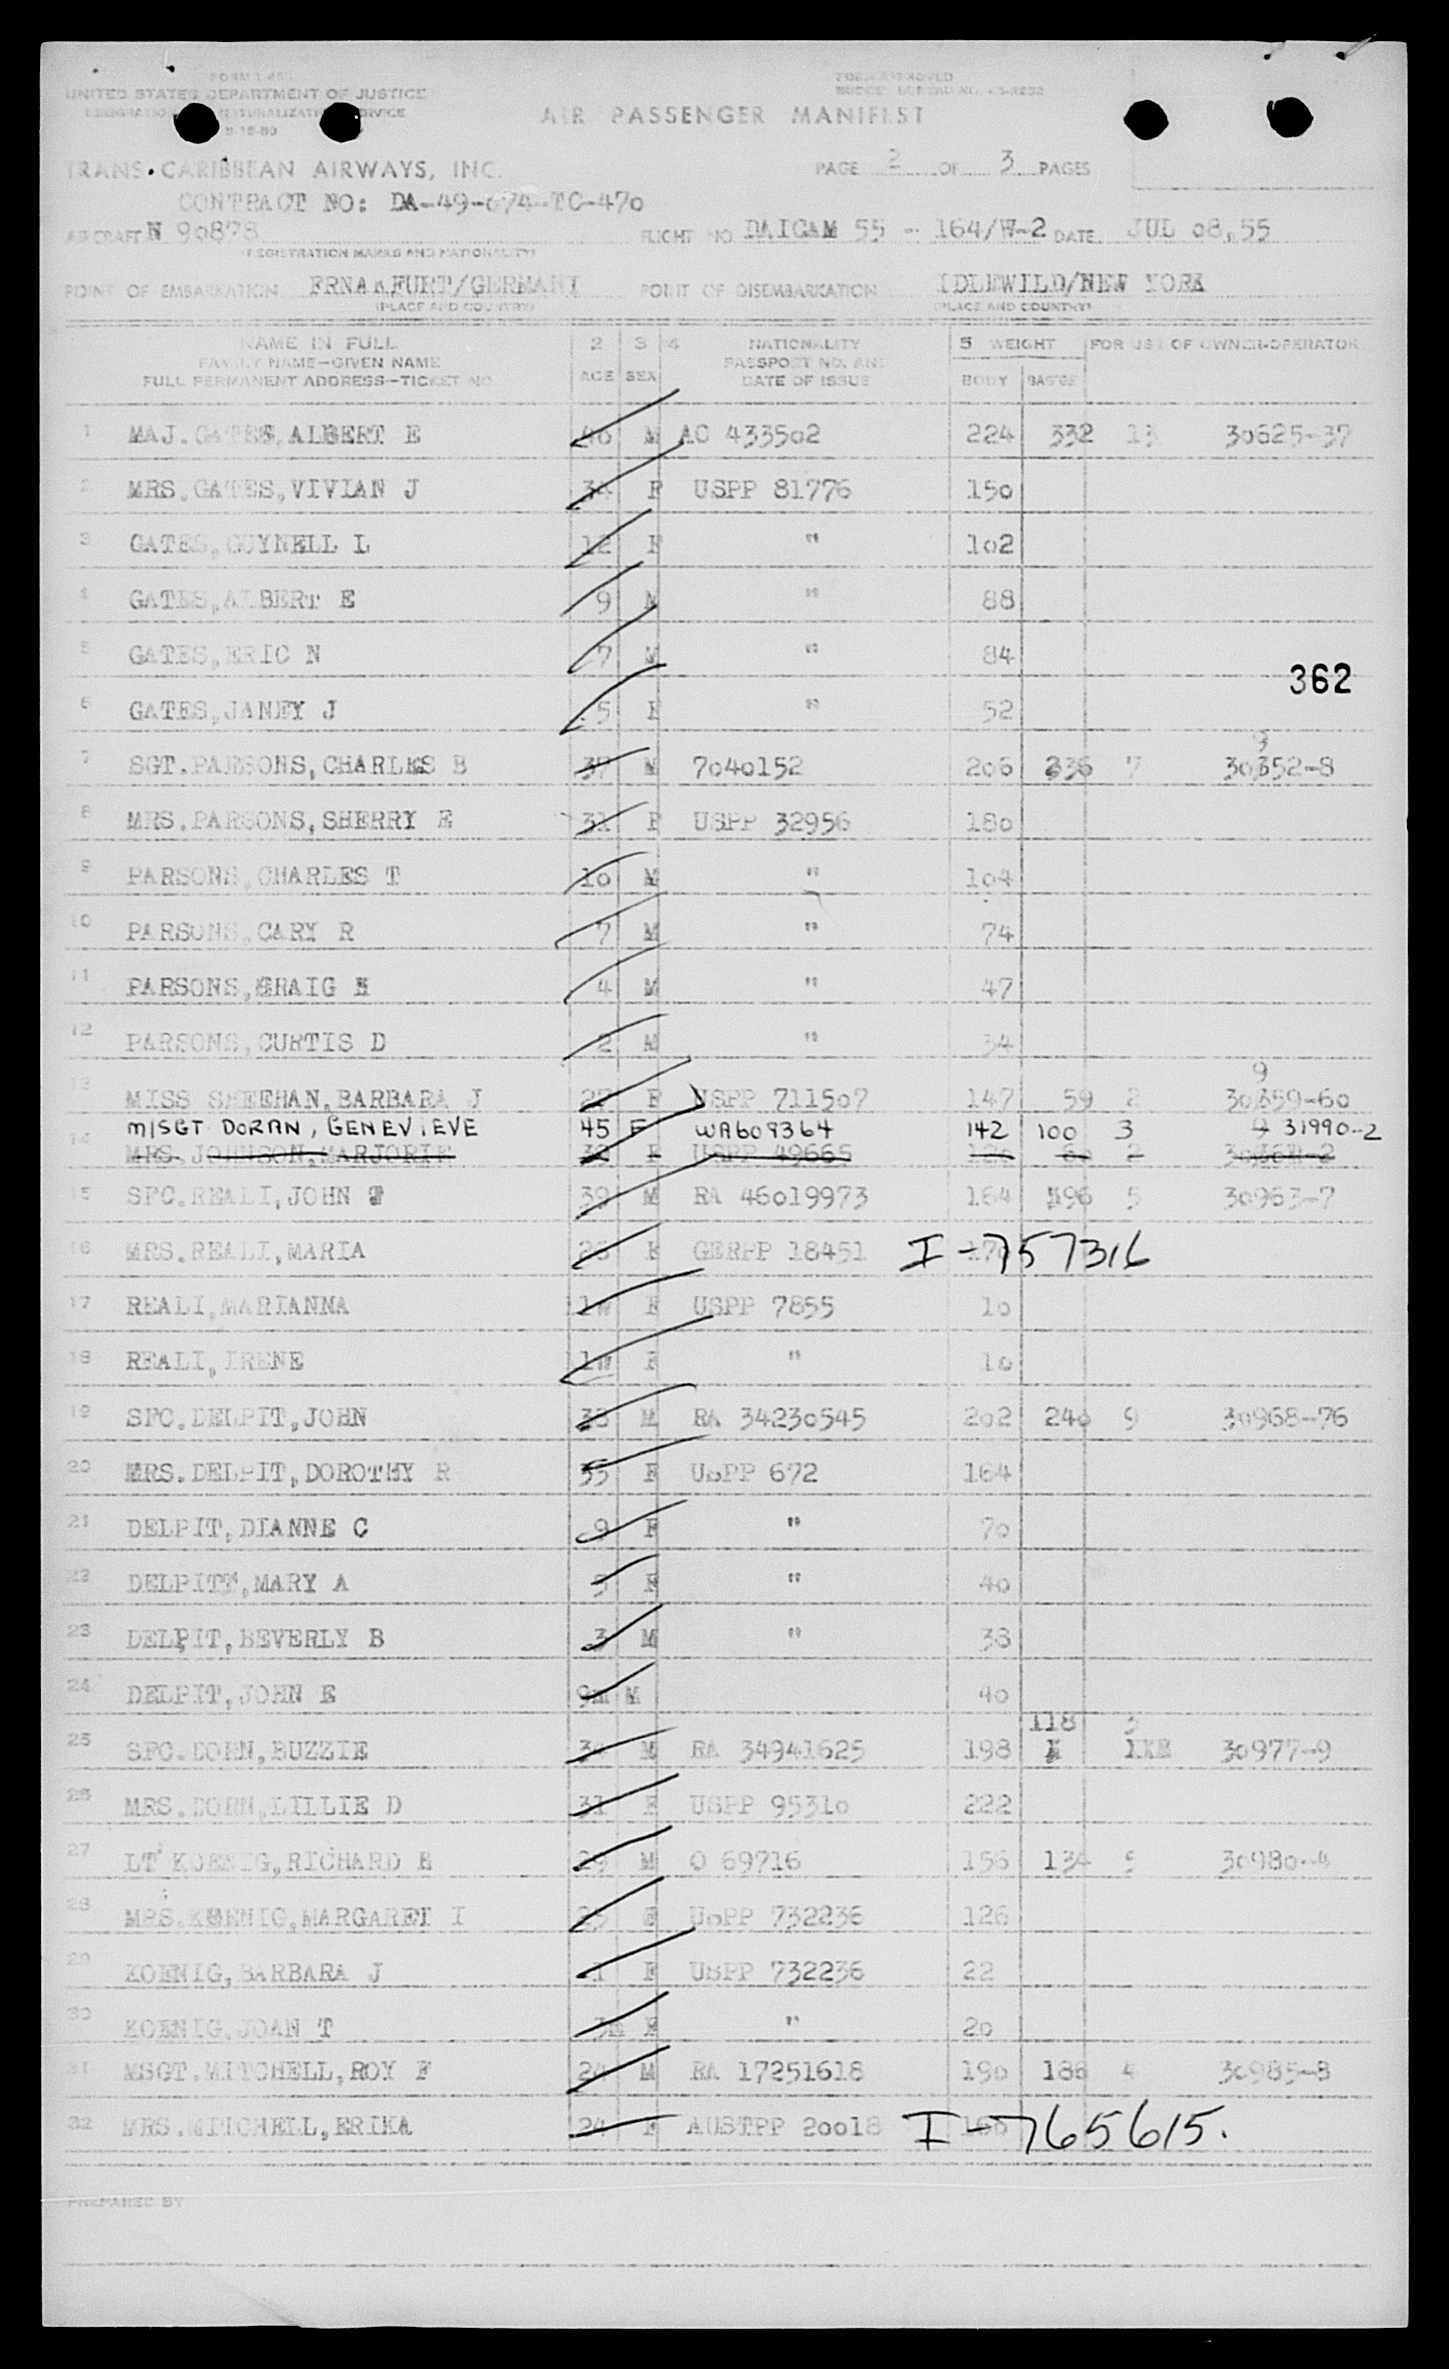 FORM I-466
UNITED STATES DEPARTMENT OF JUSTICE
FORM APPROVED
AIR PASSENGER MANIFEST
TRANS CARIBBEAN AIRWAYS, INC.
PAGE 2 OF 3 PAGES
CONTRACT NO: DA-49-074-TC-470
AIRCRAFT N 90878 FLIGHT NO. DAICAM 55 - 164/W-2 DATE JUL 08, 55
(REGISTRATION MARKS AND NATIONALITY)
POINT OF EMBARKATION FRNAKFURT/GERMANY POINT OF DISEMBARKATION IDLEWILD/NEW YORK
(PLACE AND COUNTRY) (PLACE AND COUNTRY)
NAME IN FULL 2 3 4 NATIONALITY 5 WEIGHT FOR USE OF OWNER-OPERATOR
FAMILY NAME—GIVEN NAME PASSPORT NO. AND
FULL PERMANENT ADDRESS—TICKET NO. AGE SEX DATE OF ISSUE BODY BAG'GE
1 MAJ.GATES,ALBERT E 46 M AO 433502 224 332 13 30625-37
2 MRS.GATES,VIVIAN J 34 F USPP 81776 150
3 GATES,GUYNELL L 12 F " 102
4 GATES,ALBERT E 9 M " 88
5 GATES,ERIC N 7 M " 84
362
6 GATES,JANEY J 5 F " 52
9
7 SGT.PARSONS,CHARLES B 37 M 7040152 206 236 7 30352-8
8 MRS.PARSONS,SHERRY E 31 F USPP 32956 180
9 PARSONS,CHARLES T 10 M " 104
10 PARSONS,CARY R 7 M " 74
11 PARSONS,CRAIG H 4 M " 47
12 PARSONS,CURTIS D 2 M " 34
9
13 MISS SHEEHAN,BARBARA J 27 F USPP 711507 147 59 2 30359-60
M/SGT DORAN, GENEVIEVE 45 F WA609364 142 100 3 31990-2
14 MRS. JOHNSON,MARJORIE F USPP 49665 2
15 SFC.REALI,JOHN T 39 M RA 46019973 164 196 5 30963-7
16 MRS.REALI,MARIA 26 F GERPP 18451 I-757316
17 REALI,MARIANNA 11W F USPP 7855 10
18 REALI,IRENE 11W F " 10
19 SFC.DELPIT,JOHN 38 M RA 34230545 202 240 9 30968-76
20 MRS.DELPIT,DOROTHY R 35 F USPP 672 164
21 DELPIT,DIANNE C 9 F " 70
22 DELPIT,MARY A 5 F " 40
23 DELPIT,BEVERLY B 3 M " 38
24 DELPIT,JOHN E 9M M 40
118 3
25 SFC.DORN,BUZZIE 34 M RA 34941625 198 30977-9
26 MRS.DORN,LILLIE D 31 F USPP 95310 222
27 LT KOENIG,RICHARD E 29 M O 69716 156 134 5 30980-4
28 MRS.KOENIG,MARGARET I 25 F USPP 732236 126
29 KOENIG,BARBARA J 1 F USPP 732236 22
30 KOENIG,JOAN T 3M F " 20
31 MSGT.MITCHELL,ROY F 24 M RA 17251618 190 186 4 30985-8
32 MRS.MITCHELL,ERIKA 24 F AUSTPP 20018 I-765615.
PREPARED BY